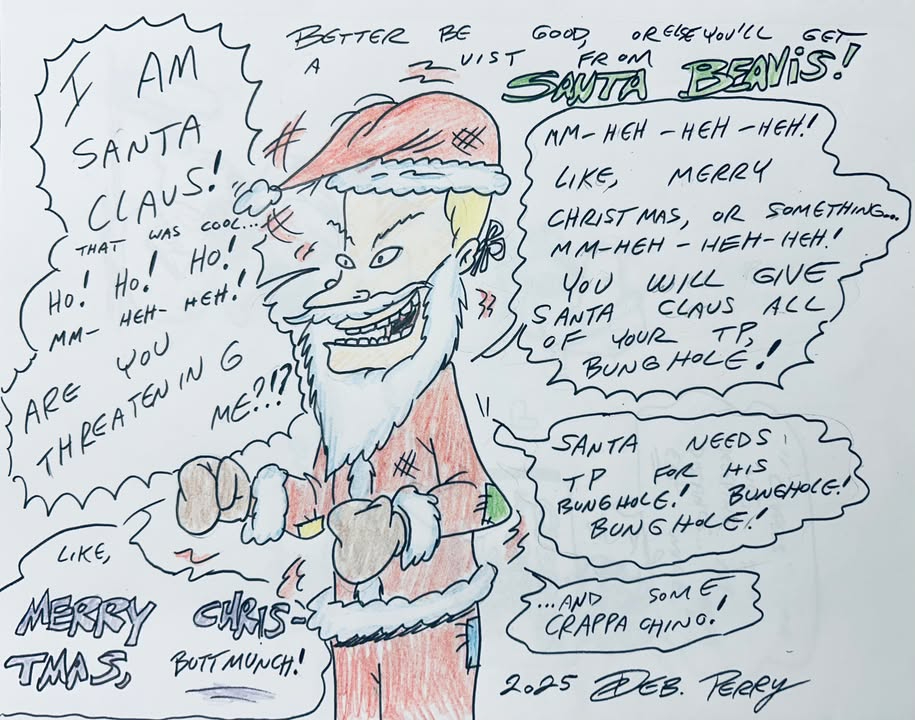 BETTER BE GOOD, OR ELSE YOU'LL GET
A VIST FROM
SANTA BEAVIS!
I AM
SANTA
CLAUS!
THAT WAS COOL...
HO! HO! HO!
MM- HEH- HEH!
ARE YOU
THREATENING
ME?!?
MM-HEH-HEH-HEH!
LIKE, MERRY
CHRISTMAS, OR SOMETHING...
MM-HEH-HEH-HEH!
YOU WILL GIVE
SANTA CLAUS ALL
OF YOUR TP,
BUNGHOLE!
SANTA NEEDS
TP FOR HIS
BUNGHOLE! BUNGHOLE!
BUNGHOLE!
...AND SOME
CRAPPACHINO!
LIKE,
MERRY CHRIS-
TMAS,
BUTTMUNCH!
2025 DEB. PERRY